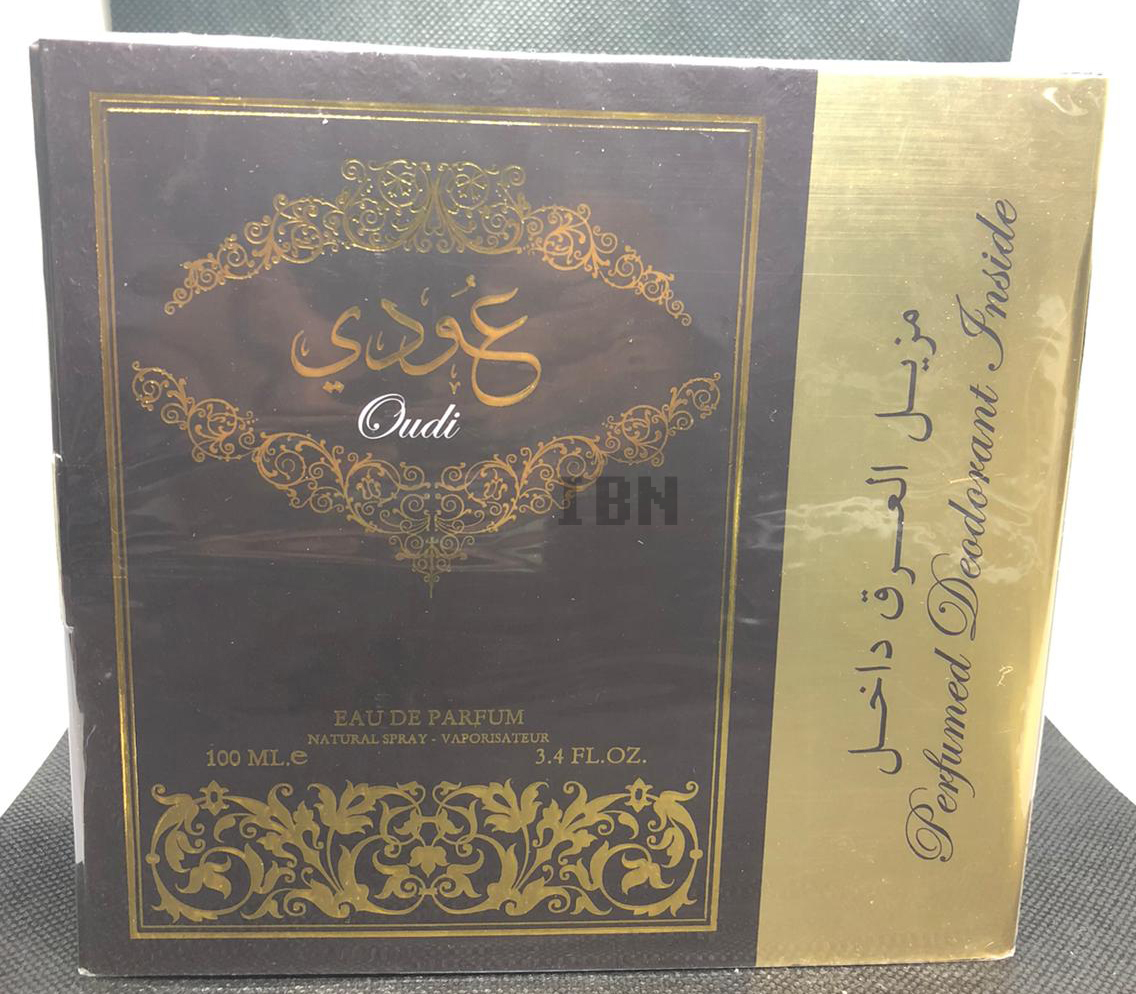 عُودي
Oudi
IBN
EAU DE PARFUM
NATURAL SPRAY - VAPORISATEUR
100 ML.e
3.4 FL.OZ.
مزيـل العـرق داخـل
Perfumed Deodorant Inside